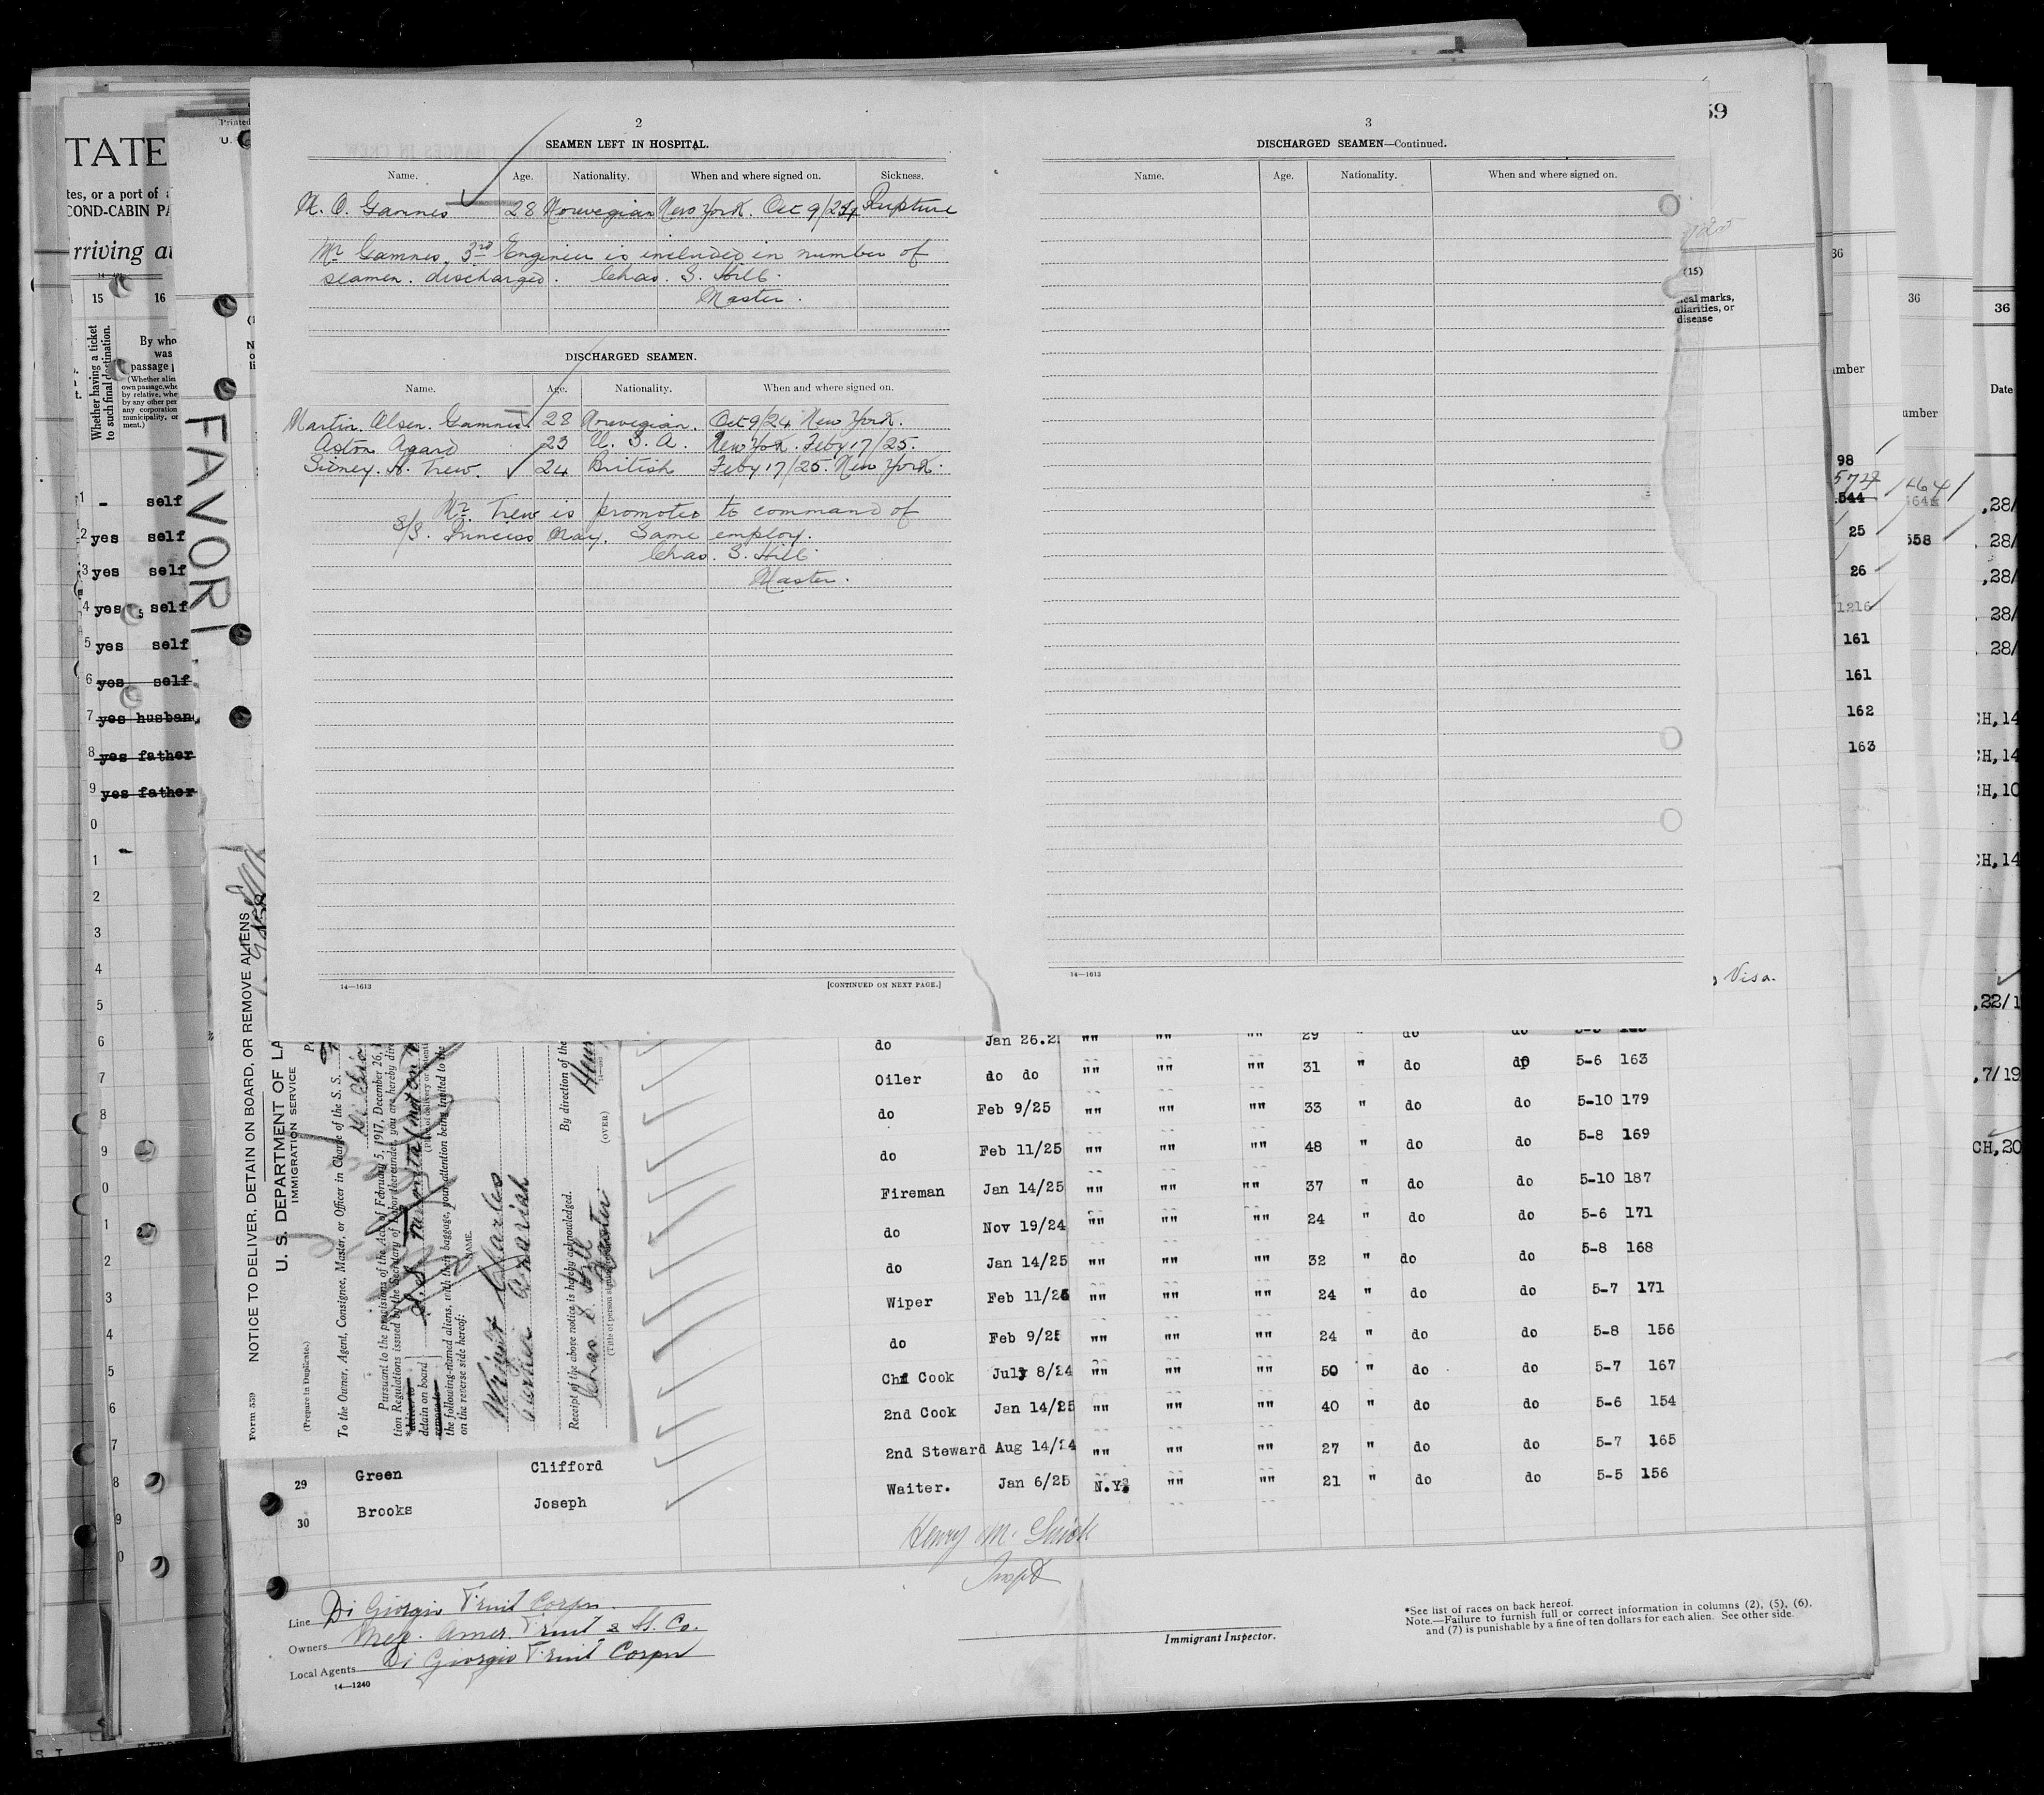 2
SEAMEN LEFT IN HOSPITAL.
Name. Age. Nationality. When and where signed on. Sickness.
M. O. Gamnes 28 Norwegian New York. Oct 9/24 Rupture
Mr Gamnes. 3rd Engineer is included in number of
seamen. discharged. Chas. S. Hill.
Master.
DISCHARGED SEAMEN.
Name. Age. Nationality. When and where signed on.
Martin. Olsen. Gamnes 28 Norwegian. Oct 9/24 New York.
Aston Agard 23 U. S. A. New York. Feby 17/25.
Sidney. H. Trew. 24 British Feby 17/25. New York.
Mr. Trew is promoted to command of
S/S. Princess May. Same employ.
Chas. S. Hill.
Master.
14—1613 [CONTINUED ON NEXT PAGE.]
3
DISCHARGED SEAMEN—Continued.
Name. Age. Nationality. When and where signed on.
14—1613
59
(15)
marks,
disease
98
544
25
26
1216
161
161
162
163
Visa.
36
36
36
Date
TATE
tes, or a port of
COND-CABIN
rriving
15 16
Whether having a ticket
to such final destination.
By who
was
passage
1 - self
2 yes self
3 yes self
4 yes self
5 yes self
6 yes self
7 yes husban
8 yes father
9 yes father
FAVORI
Form 539
(Prepare in Duplicate.)
NOTICE TO DELIVER, DETAIN ON BOARD, OR REMOVE ALIENS
U. S. DEPARTMENT OF LA
IMMIGRATION SERVICE
To the Owner, Agent, Consignee, Master, or Officer in Charge of the S. S.
Pursuant to the provisions of the Acts of February 5, 1917, December 26,
tion Regulations issued by the Secretary of Labor thereunder, you are hereby
detain on board
the following-named aliens, with their baggage, your attention being invited to the
on the reverse side hereof:
NAME.
Wright Charles
Receipt of the above notice is hereby acknowledged. By direction of the
Chas S. Hill
Master
(OVER)
do Jan 26.2 "" "" "" 29 " do do
Oiler do do "" "" "" 31 " do do 5-6 163
do Feb 9/25 "" "" "" 33 " do do 5-10 179
do Feb 11/25 "" "" "" 48 " do do 5-8 169
Fireman Jan 14/25 "" "" "" 37 " do do 5-10 187
do Nov 19/24 "" "" "" 24 " do do 5-6 171
do Jan 14/25 "" "" "" 32 " do do 5-8 168
Wiper Feb 11/25 "" "" "" 24 " do do 5-7 171
do Feb 9/25 "" "" "" 24 " do do 5-8 156
Chf Cook July 8/24 "" "" "" 50 " do do 5-7 167
2nd Cook Jan 14/25 "" "" "" 40 " do do 5-6 154
29 Green Clifford 2nd Steward Aug 14/24 "" "" "" 27 " do do 5-7 165
30 Brooks Joseph Waiter. Jan 6/25 N.Y. "" "" 21 " do do 5-5 156
Henry M.
Line Di Giorgio Fruit Corpn.
Owners Mex. Amer. Fruit & St. Co.
Local Agents Di Giorgio Fruit Corpn
14—1240
Immigrant Inspector.
*See list of races on back hereof.
Note.—Failure to furnish full or correct information in columns (2), (5), (6),
and (7) is punishable by a fine of ten dollars for each alien. See other side.